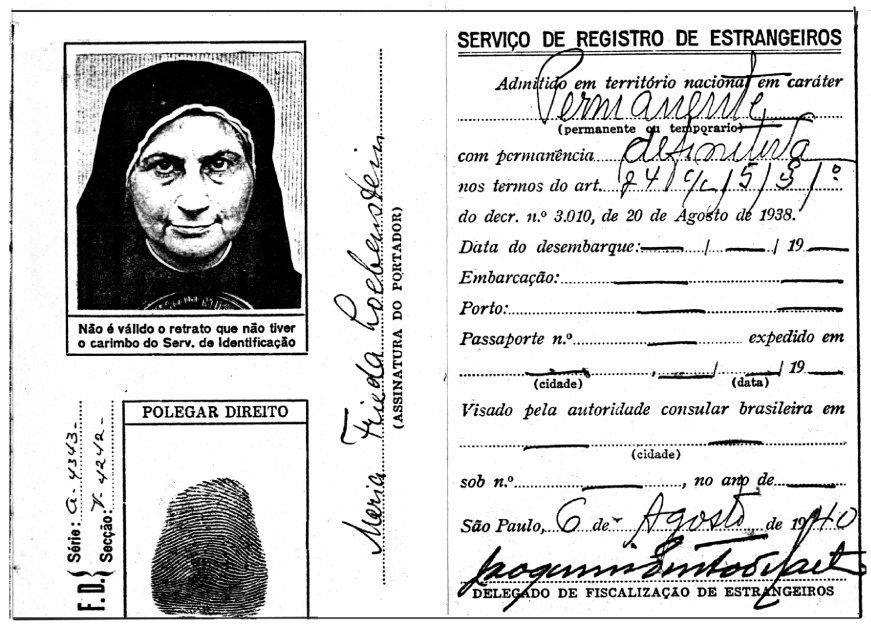 Não é válido o retrato que não tiver
o carimbo do Serv. de Identificação
Maria Frieda Loebenstein
(ASSINATURA DO PORTADOR)
F. D.
Série: a-4343-
Secção: V-4242-
POLEGAR DIREITO
SERVIÇO DE REGISTRO DE ESTRANGEIROS
Admitido em território nacional em caráter
Permanente
(permanente ou temporario)
com permanência definitiva
nos termos do art.
do decr. n.º 3.010, de 20 de Agosto de 1938.
Data do desembarque: / / 19
Embarcação:
Porto:
Passaporte n.º expedido em
, / / 19
(cidade) (data)
Visado pela autoridade consular brasileira em
(cidade)
sob n.º , no ano de
São Paulo, 6 de Agosto de 1940
DELEGADO DE FISCALIZAÇÃO DE ESTRANGEIROS